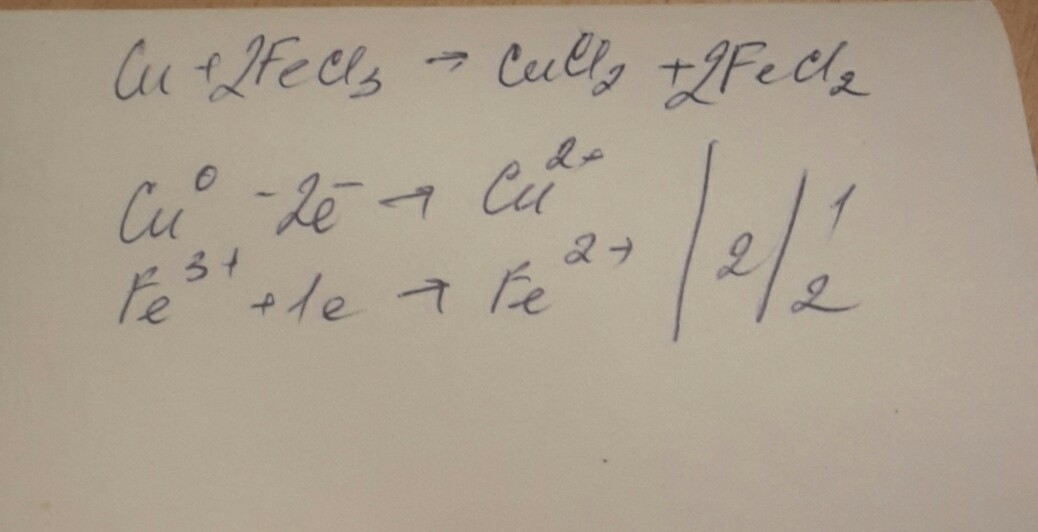 Cu + 2FeCl₃ → CuCl₂ + 2FeCl₂
Cu⁰ - 2e⁻ → Cu²⁺ | 2 | 1
Fe³⁺ + 1e → Fe²⁺ | | 2